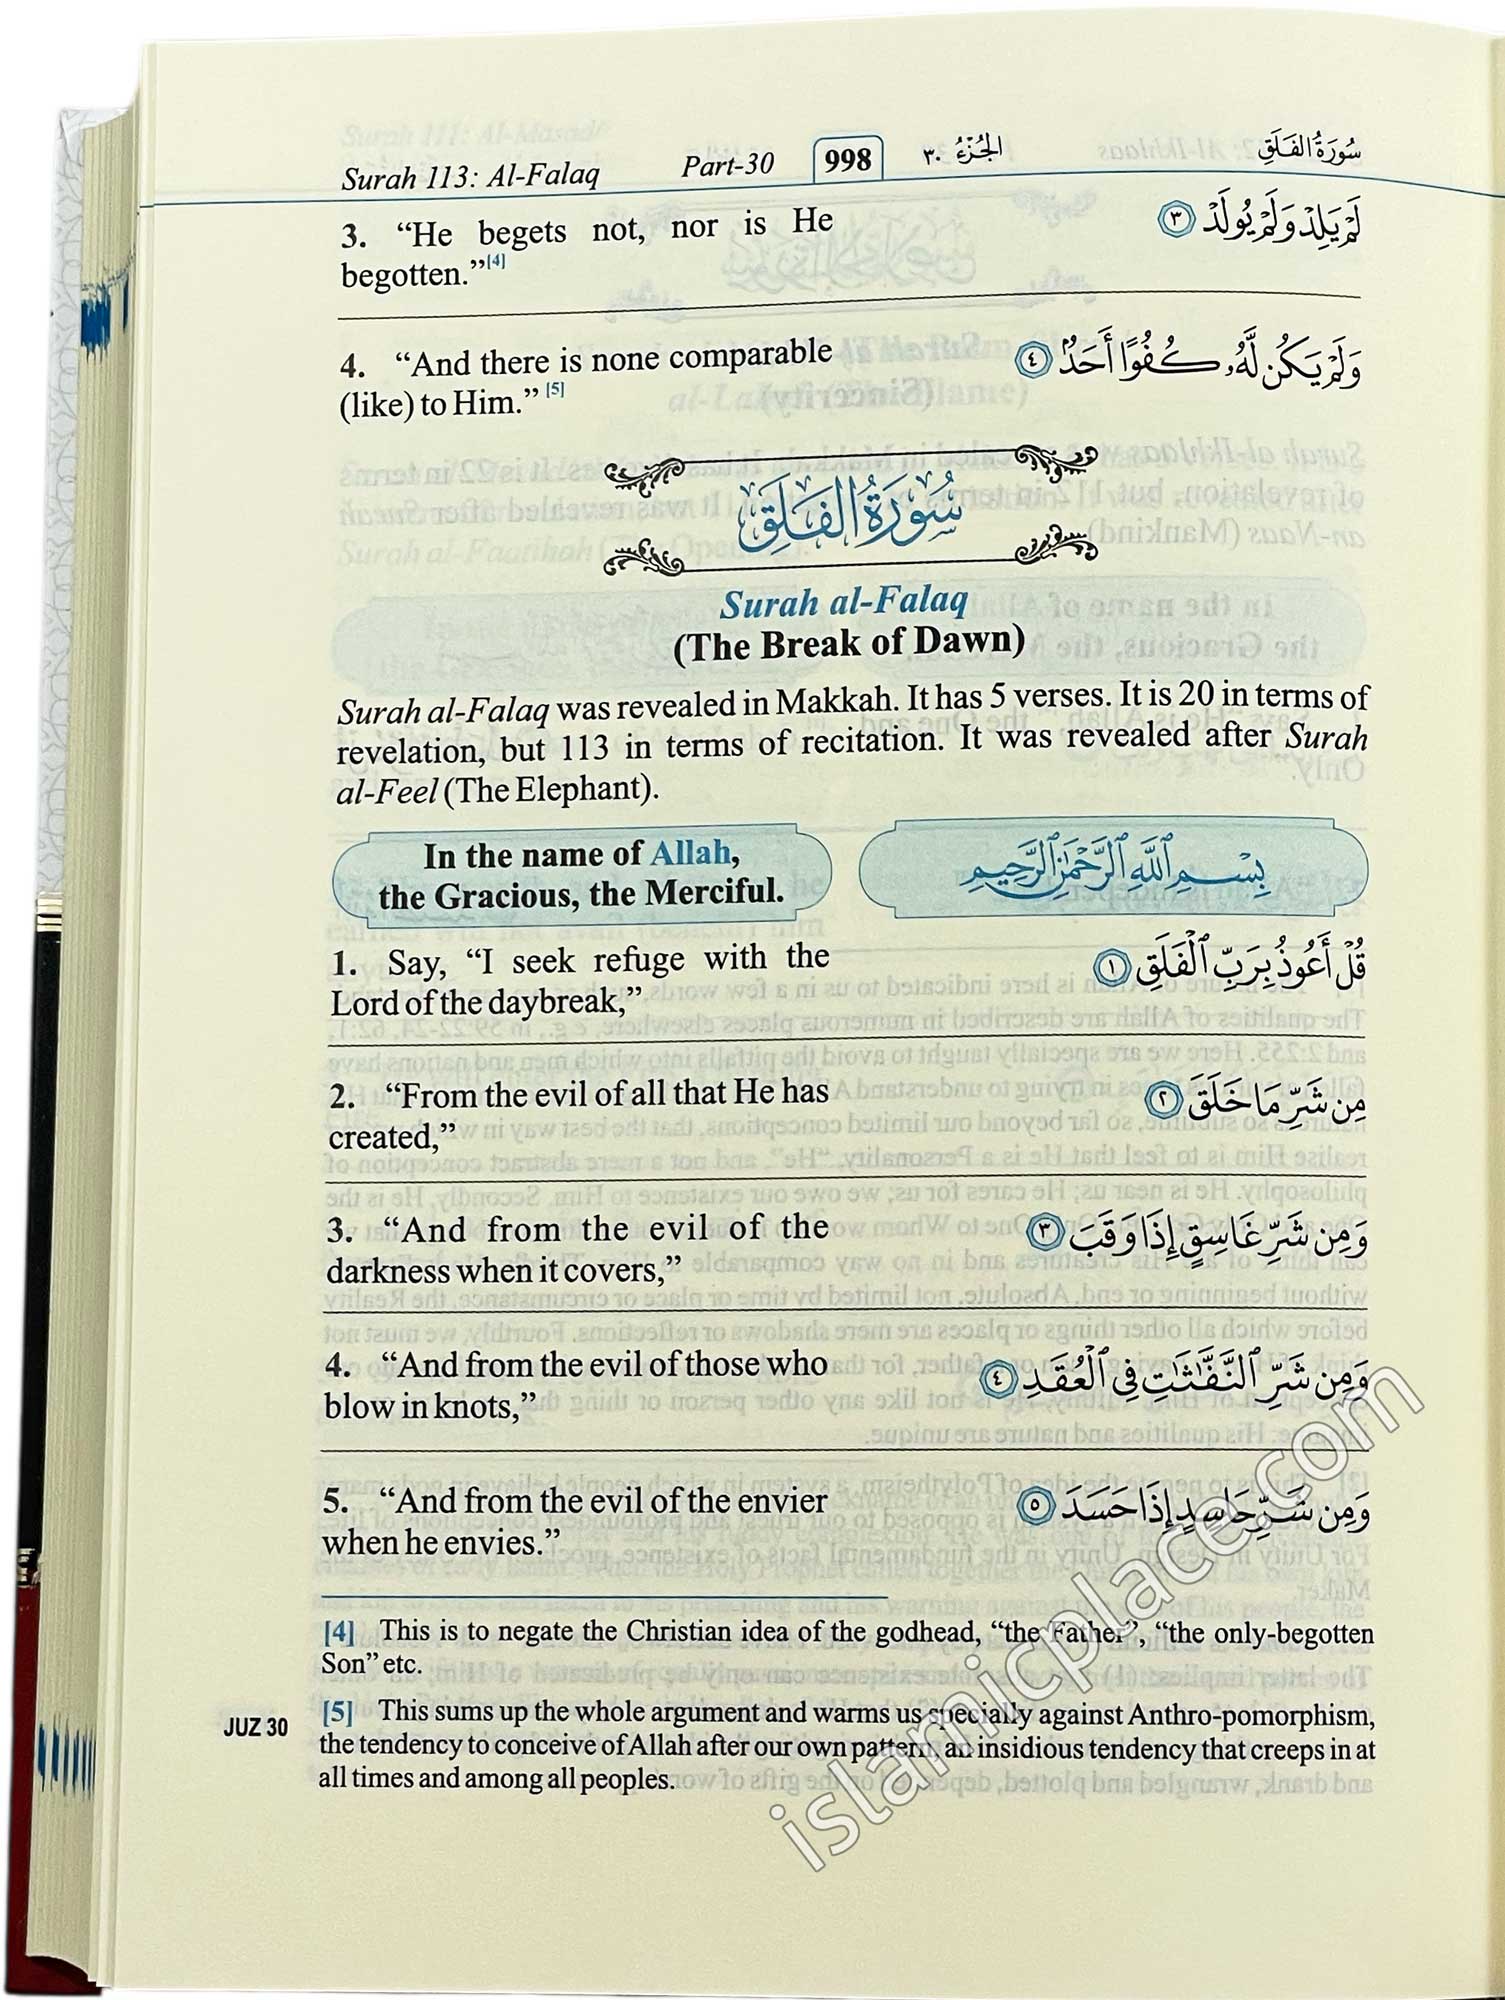 Surah 113: Al-Falaq Part-30 998 الجُزْءُ ٣٠ سُورَةُ الفَلَقِ
3. “He begets not, nor is He
begotten.”[4]
لَمْ يَلِدْ وَلَمْ يُولَدْ ٣
4. “And there is none comparable
(like) to Him.” [5]
وَلَمْ يَكُن لَّهُۥ كُفُوًا أَحَدٌۢ ٤
سُورَةُ الفَلَقِ
Surah al-Falaq
(The Break of Dawn)
Surah al-Falaq was revealed in Makkah. It has 5 verses. It is 20 in terms of
revelation, but 113 in terms of recitation. It was revealed after Surah
al-Feel (The Elephant).
In the name of Allah,
the Gracious, the Merciful.
بِسْمِ ٱللَّهِ ٱلرَّحْمَٰنِ ٱلرَّحِيمِ
1. Say, “I seek refuge with the
Lord of the daybreak,”
قُلْ أَعُوذُ بِرَبِّ ٱلْفَلَقِ ١
2. “From the evil of all that He has
created,”
مِن شَرِّ مَا خَلَقَ ٢
3. “And from the evil of the
darkness when it covers,”
وَمِن شَرِّ غَاسِقٍ إِذَا وَقَبَ ٣
4. “And from the evil of those who
blow in knots,”
وَمِن شَرِّ ٱلنَّفَّٰثَٰتِ فِى ٱلْعُقَدِ ٤
5. “And from the evil of the envier
when he envies.”
وَمِن شَرِّ حَاسِدٍ إِذَا حَسَدَ ٥
[4] This is to negate the Christian idea of the godhead, “the Father”, “the only-begotten
Son” etc.
[5] This sums up the whole argument and warms us specially against Anthro-pomorphism,
the tendency to conceive of Allah after our own pattern, an insidious tendency that creeps in at
all times and among all peoples.
JUZ 30
islamicplace.com